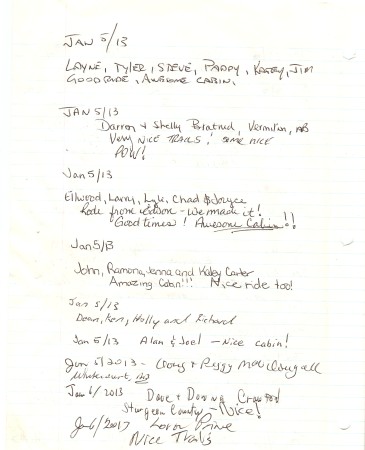 JAN 5/13
LAYNE, TYLER, STEVE, PADDY, KASEY, JIM
GOOD RIDE, AWESOME CABIN.
JAN 5/13
Darren + Shelly Bratrud, Vermilion, AB
Very NICE TRAILS! some NICE
POW!
Jan 5/13
Ellwood, Larry, Lyle, Chad & Joyce
Rode from edson - We made it!
Good times! Awesome Cabin!!
Jan 5/13
John, Ramona, Jenna and Kaley Carter
Amazing Cabin!!! Nice ride too!
Jan 5/13
Dean, Ken, Holly and Richard
Jan 5/13 Alan & Joel - Nice cabin!
Jan 5/2013 - Craig + Peggy MacDougall
Whitecourt, AB
Jan 6/2013 Dave + Donna Crawford
Sturgeon County - Nice!
Jan 6/2013 Loron Prine
Nice Trails